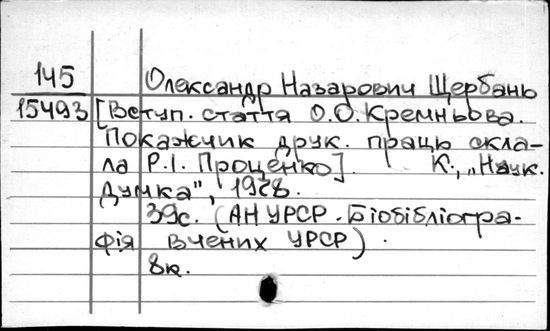 145 Олександр Назарович Щербань
15493 [Вступ. стаття О.О.Кремньова.
Покажчик друк. праць скла-
ла Р.І. Проценко]. К., „Наук.
Думка", 1968.
39с. (АН УРСР. Біобібліогра-
фія вчених УРСР).
8к.